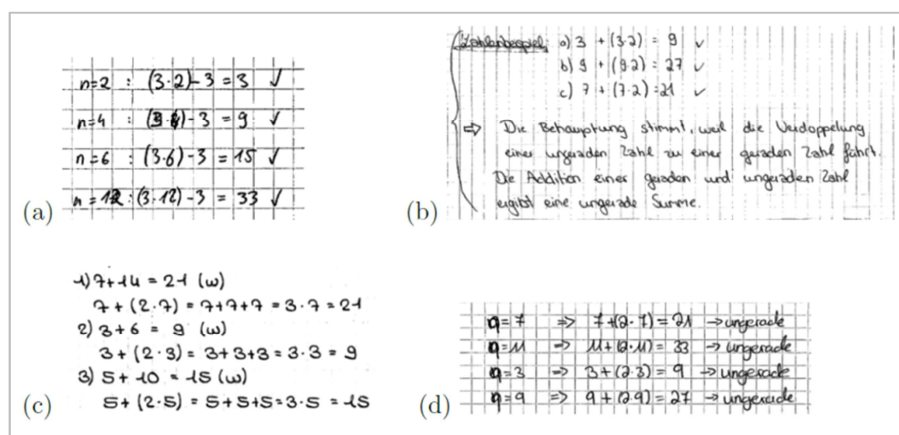 n=2 : (3·2)-3 = 3 ✓
n=4 : (3·4)-3 = 9 ✓
n=6 : (3·6)-3 = 15 ✓
n=12 : (3·12)-3 = 33 ✓
(a)
Zahlenbeispiel: a) 3 + (3·2) = 9 ✓
b) 9 + (9·2) = 27 ✓
c) 7 + (7·2) = 21 ✓
⇨ Die Behauptung stimmt, weil die Verdoppelung
einer ungeraden Zahl zu einer geraden Zahl führt.
Die Addition einer geraden und ungeraden Zahl
ergibt eine ungerade Summe.
(b)
1) 7+14 = 21 (w)
7+(2·7) = 7+7+7 = 3·7 = 21
2) 3+6 = 9 (w)
3+(2·3) = 3+3+3 = 3·3 = 9
3) 5+10 = 15 (w)
5+(2·5) = 5+5+5 = 3·5 = 15
(c)
n=7 => 7+(2·7) = 21 → ungerade
n=11 => 11+(2·11) = 33 → ungerade
n=3 => 3+(2·3) = 9 → ungerade
n=9 => 9+(2·9) = 27 → ungerade
(d)